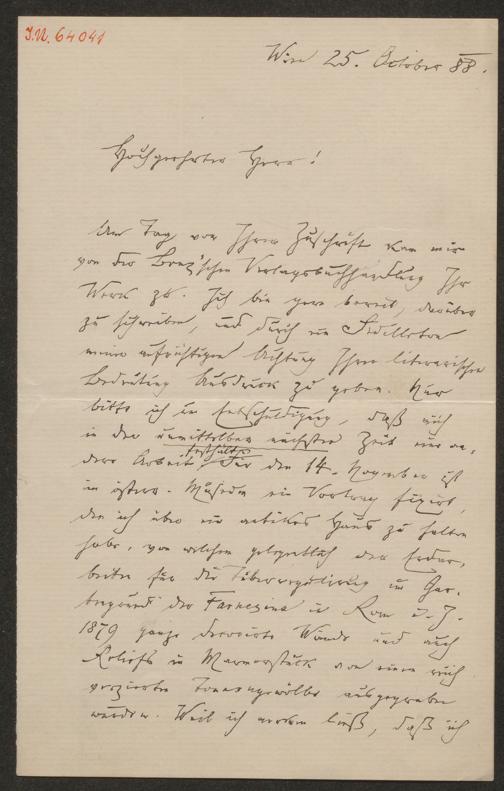 J.N. 64041
Wien 25. October 88.
Hochgeehrter Herr!
Am Tag vor Ihrer Zuschrift kam mir
von der Verlagsbuchhandlung Ihr
Werk zu. Ich bin gern bereit, darüber
zu schreiben, und durch ein Feuilleton
meine aufrichtigen Achtung Ihrer literarischen
Bedeutung Ausdruck zu geben. Nur
bitte ich um Entschuldigung, daß mich
in der unmittelbar nächsten Zeit eine an-
dere Arbeit festhält. Für den 14. November ist
im österr. Museum ein Vortrag fixirt,
den ich über ein antikes Haus zu halten
habe, von welchem gelegentlich der Erdar-
beiten für die Tiberregulirung im Gar-
tengrund der Farnesina in Rom i. J.
1879 ganze decorirte Wände und auch
Reliefs in Marmorstuck von einem reich
verzierten Tonnengewölbe ausgegraben
wurden. Weil ich merken ließ, daß ich